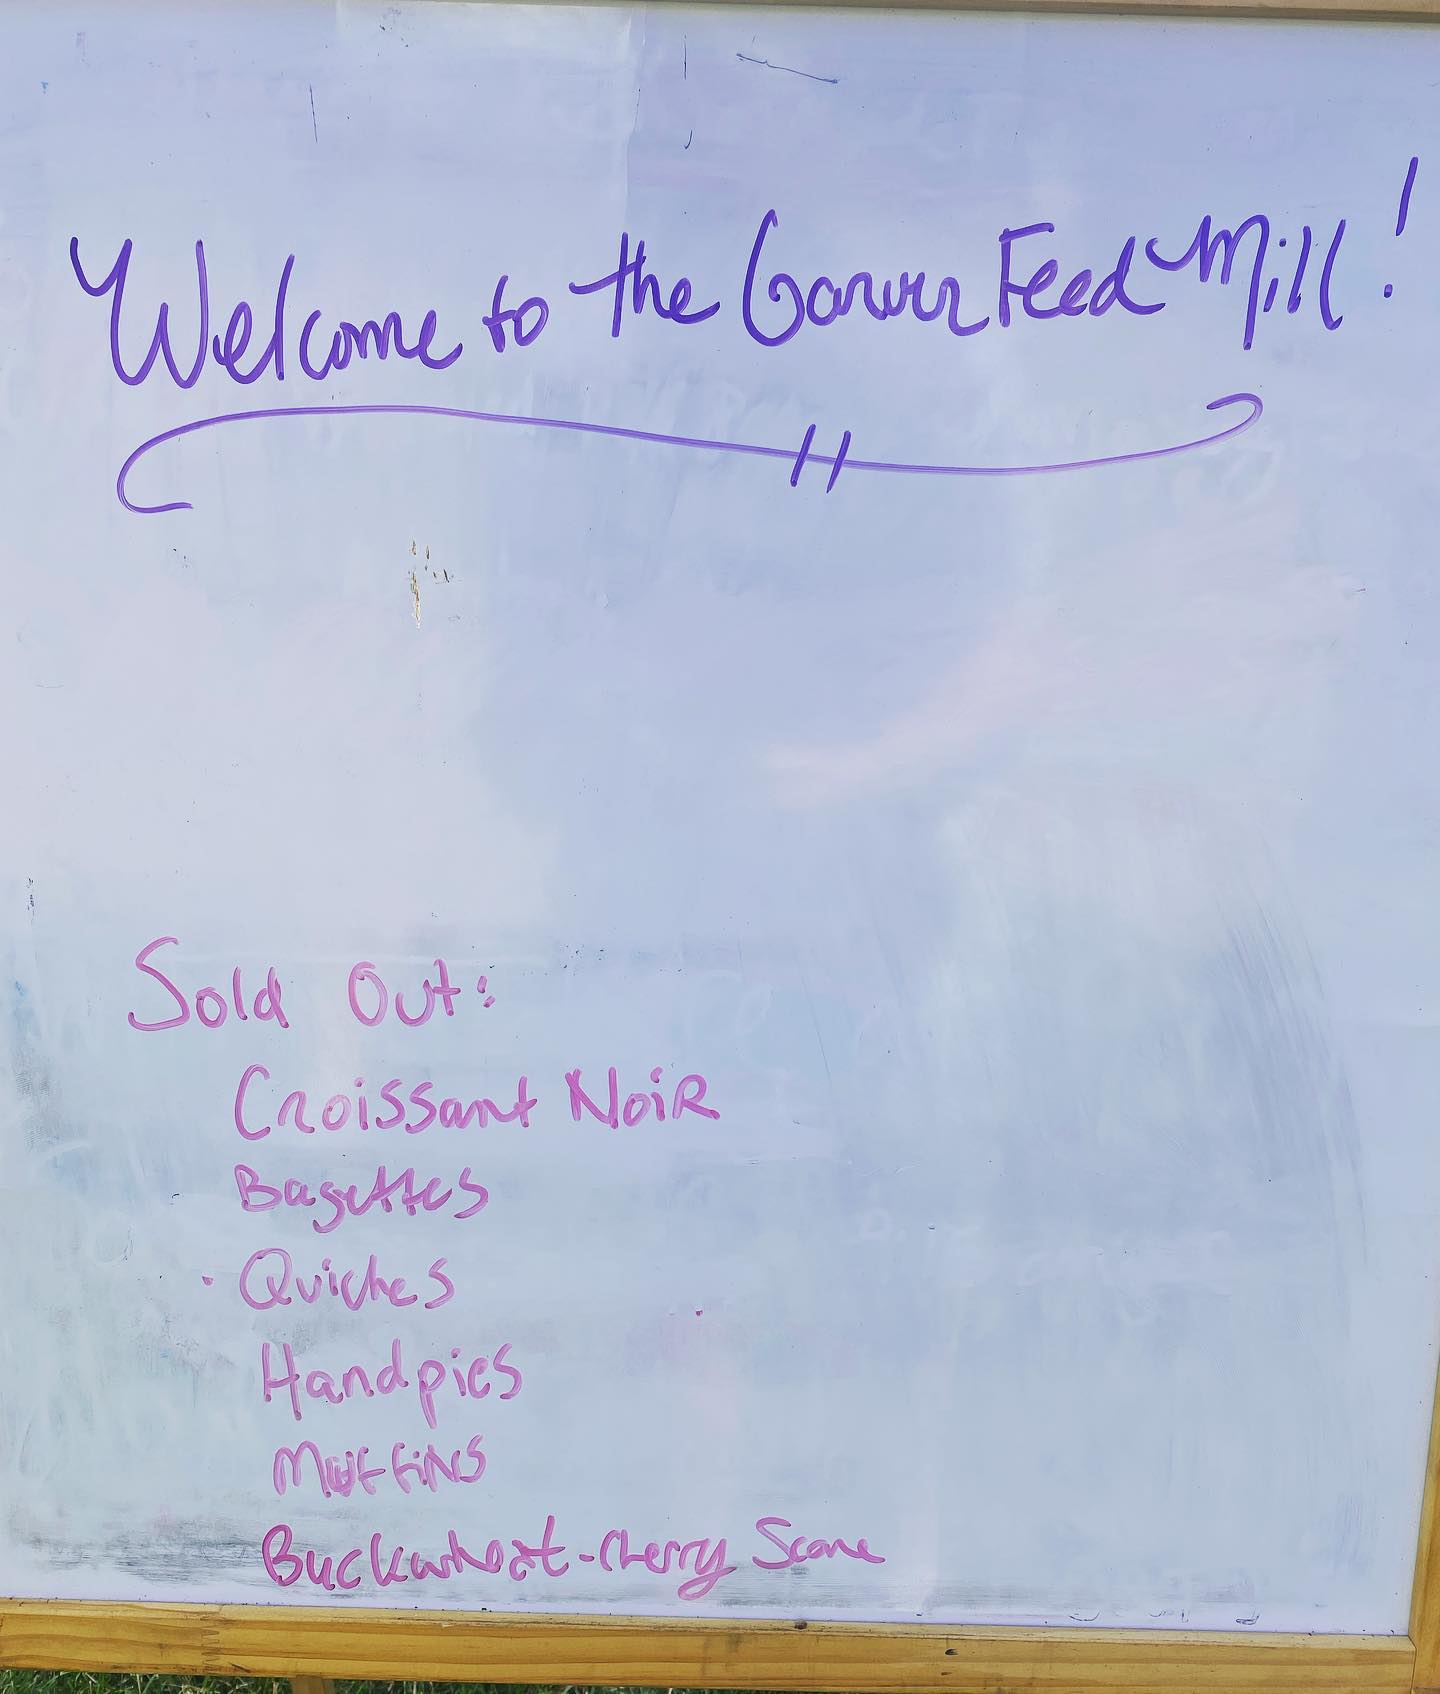 Welcome to the Garver Feed Mill!
Sold Out:
Croissant Noir
Bagettes
Quiches
Handpies
Muffins
Buckwheat-cherry Scone